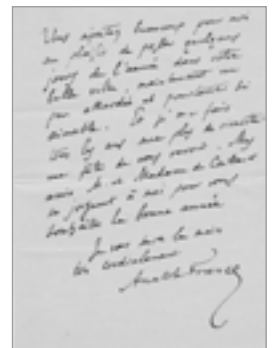 Vous ajoutez beaucoup pour moi
au plaisir de passer quelques
jours de l'année dans votre
belle ville, maintenant un
peu attardée et pourtant si
aimable. Et je me fais
une fête de vous revoir. Mes
amis M. et Madame de Caillavet
se joignent à moi pour vous
souhaiter la bonne année
Je vous serre la main
bien cordialement
Anatole France